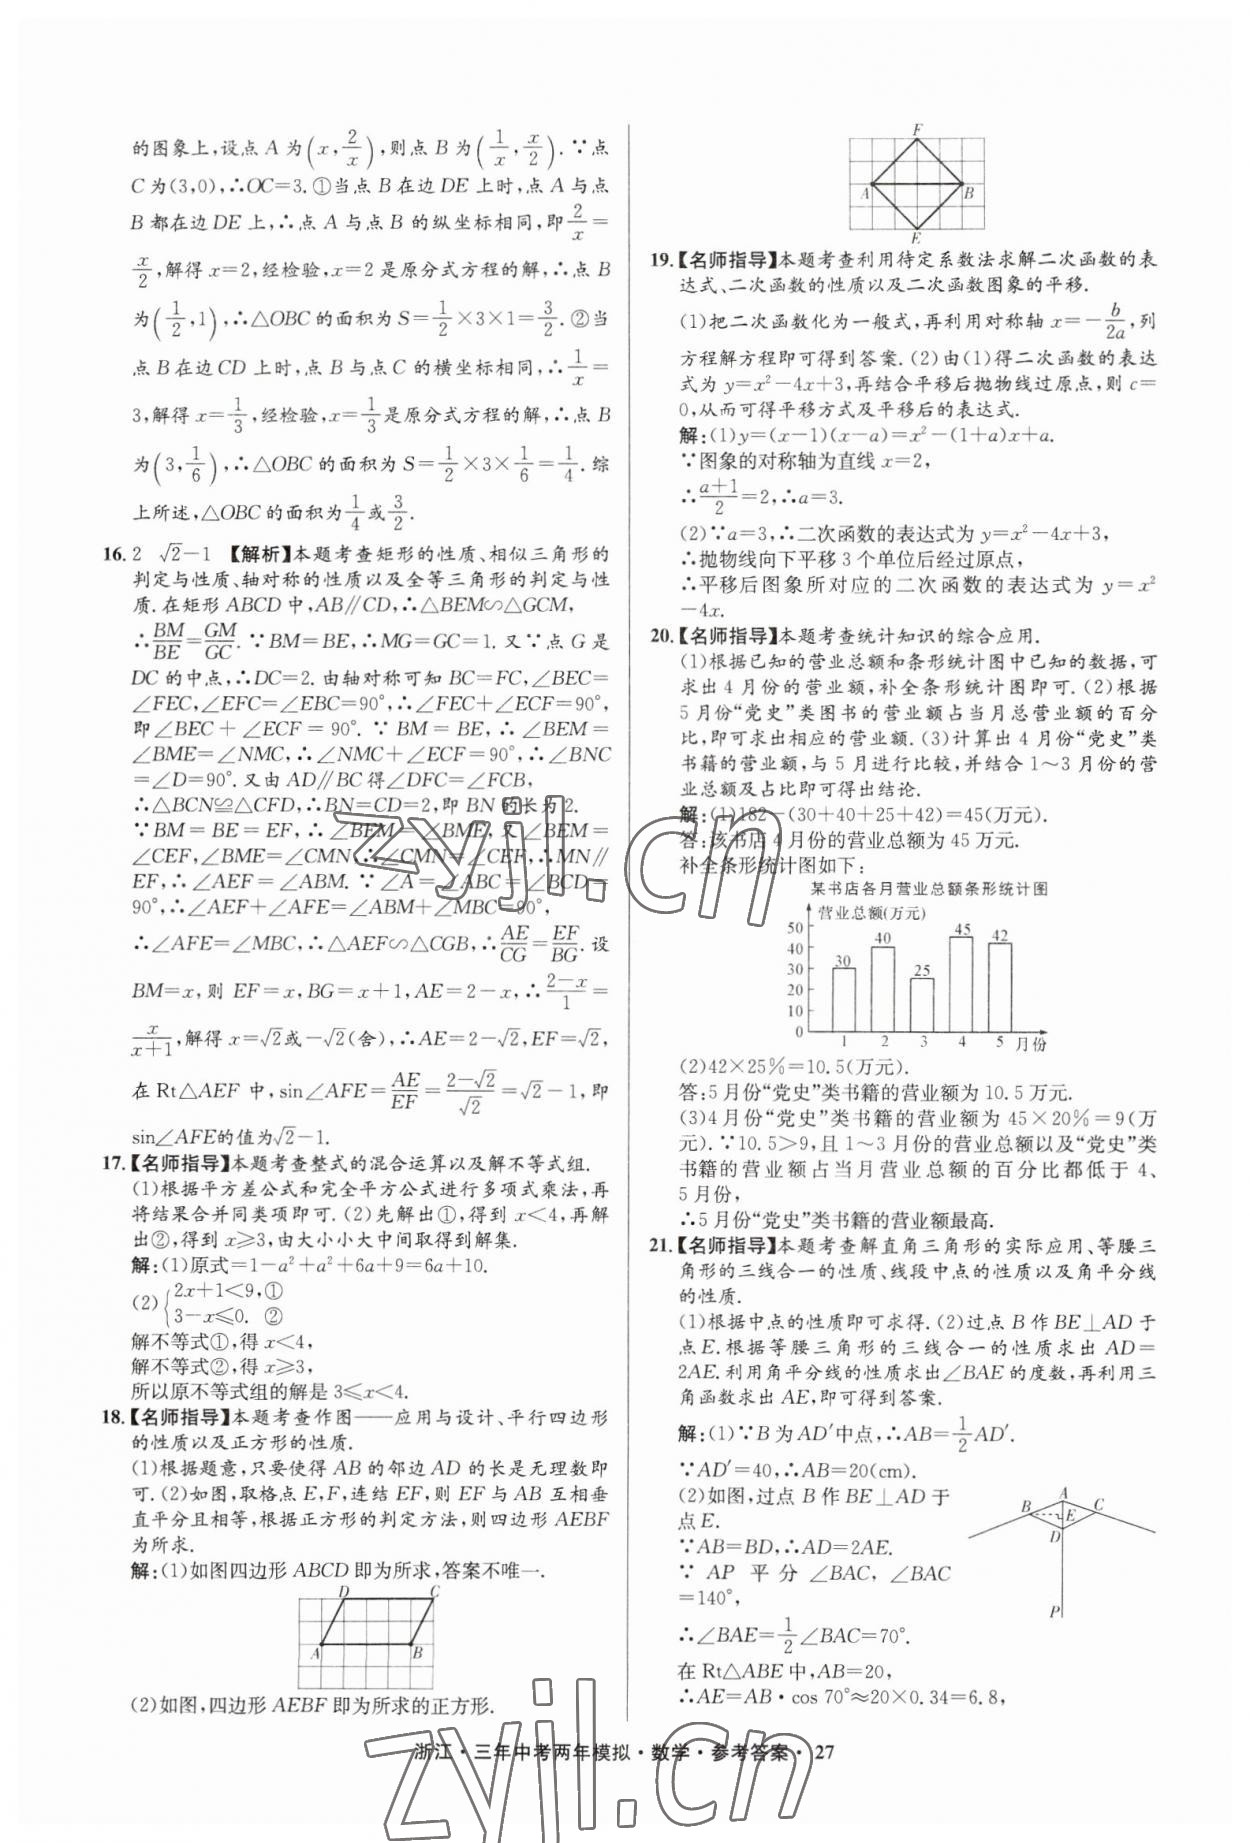 的图象上,设点 A 为(x, 2/x),则点 B 为(1/x, x/2).∵点
C为(3,0),∴OC=3.①当点 B 在边 DE 上时,点 A 与点
B 都在边 DE 上,∴点 A 与点 B 的纵坐标相同,即 2/x =
x/2,解得 x=2,经检验,x=2 是原分式方程的解,∴点 B
为(1/2,1),∴△OBC 的面积为 S=1/2×3×1=3/2.②当
点 B 在边 CD 上时,点 B 与点 C 的横坐标相同,∴1/x=
3,解得 x=1/3,经检验,x=1/3是原分式方程的解,∴点 B
为(3,1/6),∴△OBC 的面积为 S=1/2×3×1/6=1/4.综
上所述,△OBC 的面积为1/4或3/2.
16. 2 √2-1 【解析】本题考查矩形的性质、相似三角形的
判定与性质、轴对称的性质以及全等三角形的判定与性
质.在矩形 ABCD 中,AB∥CD,∴△BEM∽△GCM,
∴BM/BE=GM/GC.∵BM=BE,∴MG=GC=1.又∵点 G 是
DC 的中点,∴DC=2.由轴对称可知 BC=FC,∠BEC=
∠FEC,∠EFC=∠EBC=90°,∴∠FEC+∠ECF=90°,
即∠BEC+∠ECF=90°.∵BM=BE,∴∠BEM=
∠BME=∠NMC,∴∠NMC+∠ECF=90°,∴∠BNC
=∠D=90°.又由 AD∥BC 得∠DFC=∠FCB,
∴△BCN≌△CFD,∴BN=CD=2,即 BN 的长为 2.
∵BM=BE=EF,∴∠BEM=∠BME.又∠BEM=
∠CEF,∠BME=∠CMN,∴∠CMN=∠CEF,∴MN∥
EF,∴∠AEF=∠ABM.∵∠A=∠ABC=∠BCD=
90°,∴∠AEF+∠AFE=∠ABM+∠MBC=90°,
∴∠AFE=∠MBC,∴△AEF∽△CGB,∴AE/CG=EF/BG.设
BM=x,则 EF=x,BG=x+1,AE=2-x,∴(2-x)/1=
x/(x+1),解得 x=√2或-√2(舍),∴AE=2-√2,EF=√2,
在 Rt△AEF 中,sin∠AFE=AE/EF=(2-√2)/√2=√2-1,即
sin∠AFE的值为√2-1.
17.【名师指导】本题考查整式的混合运算以及解不等式组.
(1)根据平方差公式和完全平方公式进行多项式乘法,再
将结果合并同类项即可.(2)先解出①,得到 x<4,再解
出②,得到 x≥3,由大小小大中间取得到解集.
解:(1)原式=1-a²+a²+6a+9=6a+10.
(2){2x+1<9,①
3-x≤0. ②
解不等式①,得 x<4,
解不等式②,得 x≥3,
所以原不等式组的解是 3≤x<4.
18.【名师指导】本题考查作图——应用与设计、平行四边形
的性质以及正方形的性质.
(1)根据题意,只要使得 AB 的邻边 AD 的长是无理数即
可.(2)如图,取格点 E,F,连结 EF,则 EF 与 AB 互相垂
直平分且相等,根据正方形的判定方法,则四边形 AEBF
为所求.
解:(1)如图四边形 ABCD 即为所求,答案不唯一.
D C
A B
(2)如图,四边形 AEBF 即为所求的正方形.
F
A B
E
19.【名师指导】本题考查利用待定系数法求解二次函数的表
达式、二次函数的性质以及二次函数图象的平移.
(1)把二次函数化为一般式,再利用对称轴 x=-b/2a,列
方程解方程即可得到答案.(2)由(1)得二次函数的表达
式为 y=x²-4x+3,再结合平移后抛物线过原点,则 c=
0,从而可得平移方式及平移后的表达式.
解:(1)y=(x-1)(x-a)=x²-(1+a)x+a.
∵图象的对称轴为直线 x=2,
∴(a+1)/2=2,∴a=3.
(2)∵a=3,∴二次函数的表达式为 y=x²-4x+3,
∴抛物线向下平移 3 个单位后经过原点,
∴平移后图象所对应的二次函数的表达式为 y=x²
-4x.
20.【名师指导】本题考查统计知识的综合应用.
(1)根据已知的营业总额和条形统计图中已知的数据,可
求出 4 月份的营业额,补全条形统计图即可.(2)根据
5 月份“党史”类图书的营业额占当月总营业额的百分
比,即可求出相应的营业额.(3)计算出 4 月份“党史”类
书籍的营业额,与 5 月进行比较,并结合 1~3 月份的营
业总额及占比即可得出结论.
解:(1)182-(30+40+25+42)=45(万元).
答:该书店 4 月份的营业总额为 45 万元.
补全条形统计图如下:
某书店各月营业总额条形统计图
营业总额(万元)
50
40
30
20
10
0
30 40 25 45 42
1 2 3 4 5 月份
(2)42×25%=10.5(万元).
答:5 月份“党史”类书籍的营业额为 10.5 万元.
(3)4 月份“党史”类书籍的营业额为 45×20%=9(万
元).∵10.5>9,且 1~3 月份的营业总额以及“党史”类
书籍的营业额占当月营业总额的百分比都低于 4、
5 月份,
∴5 月份“党史”类书籍的营业额最高.
21.【名师指导】本题考查解直角三角形的实际应用、等腰三
角形的三线合一的性质、线段中点的性质以及角平分线
的性质.
(1)根据中点的性质即可求得.(2)过点 B 作 BE⊥AD 于
点 E.根据等腰三角形的三线合一的性质求出 AD=
2AE.利用角平分线的性质求出∠BAE 的度数,再利用三
角函数求出 AE,即可得到答案.
解:(1)∵B 为 AD′中点,∴AB=1/2 AD′.
∵AD′=40,∴AB=20(cm).
(2)如图,过点 B 作 BE⊥AD 于
点 E.
∵AB=BD,∴AD=2AE.
∵ AP 平分 ∠BAC, ∠BAC
=140°,
∴∠BAE=1/2∠BAC=70°.
在 Rt△ABE 中,AB=20,
∴AE=AB·cos 70°≈20×0.34=6.8,
A
B C
E
D
P
浙江·三年中考两年模拟·数学·参考答案·27
zyjl.cn
zyjl.cn